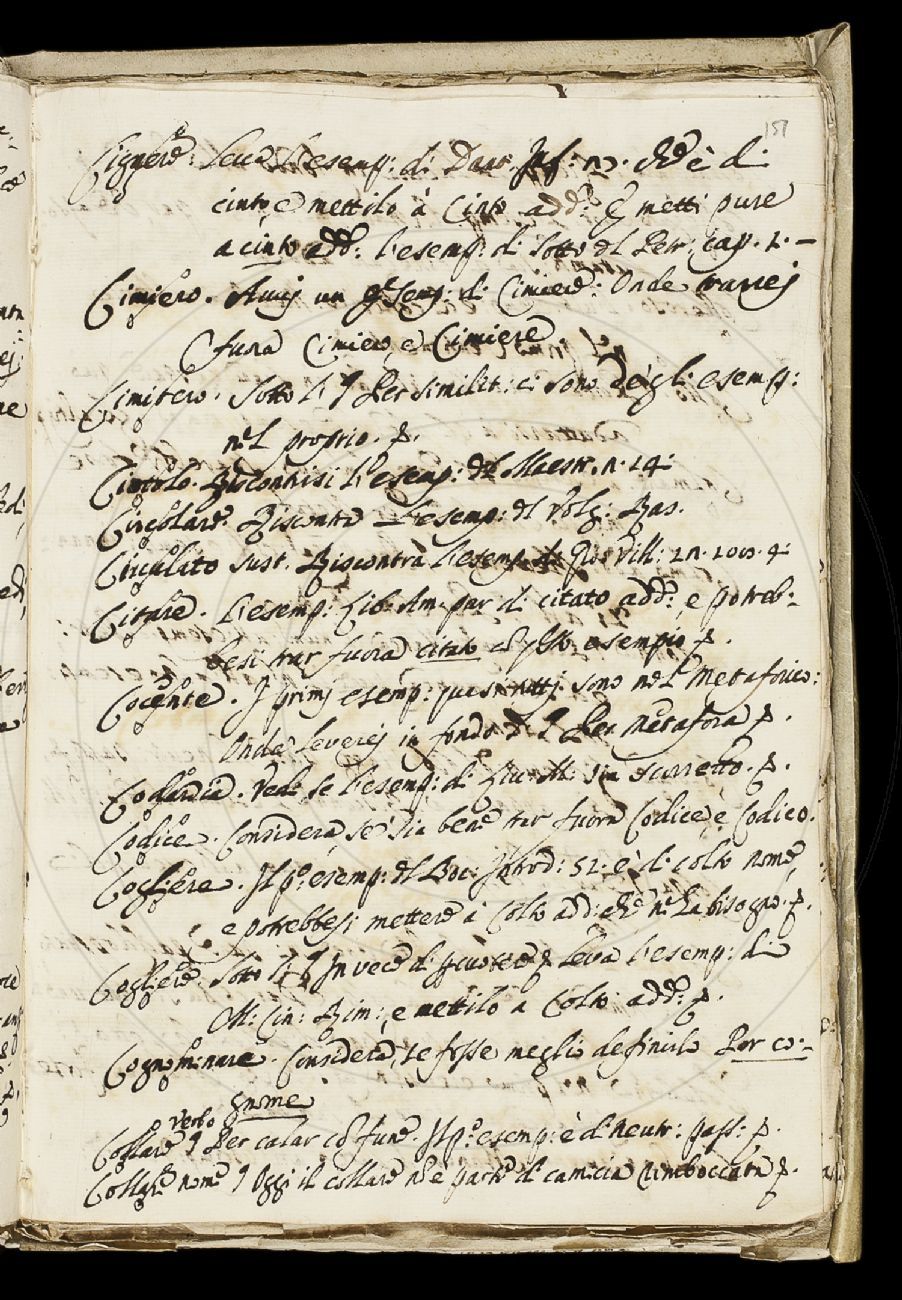 151
Cignere. Leva l'esemp: di Dant. Inf: 27. che è di
cinto, e mettilo à Cinto add:º e metti pure
a cinto add: l'esemp: di sotto del Petr. cap. 1. –
Cimiero. Avvi un esemp: di Cimiere: Onde trarrei
fuora Cimiero, e Cimiere.
Cimitero. Sotto il § Per similit: ci sono degli esemp:
nel proprio.
Cintolo. Riscontrisi l'esemp: del Maestr. n. 14:
Circolare. Riscontra l'esemp: del Volg: Ras.
Circulato sust. Riscontra l'esemp. Gio: Vill: 12. 100. 4:
Citare. l'esemp: Lib. Am. par di citato add:º e potreb-
besi trar fuora citato esempio.
Cocente. I primi esemp: quasi tutti sono nel Metaforico:
Onde leverei in fondo del § Per metafora.
Codardia. Vedi se l'esemp: di Liv: M: sia scorretto.
Codice. Considera, se sia bene trar fuora Codice, e Codico.
Cogliere. Il pº esemp: del Boc: Introd: 52. è di colto nome,
e potrebbesi mettere à Colto add: che ne ha bisogno.
Cogliere. Sotto il § In vece di Leva l'esemp: di
M: Cin: Rim:, e mettilo a Colto add:º
Cognominare. Considera, se fosse meglio definirlo Por co-
gnome
Collare verbo § Per calar con fune. Il pº esemp: è di neutr: pass:
Collare nome § Oggi il collare è parte di camicia rimboccata